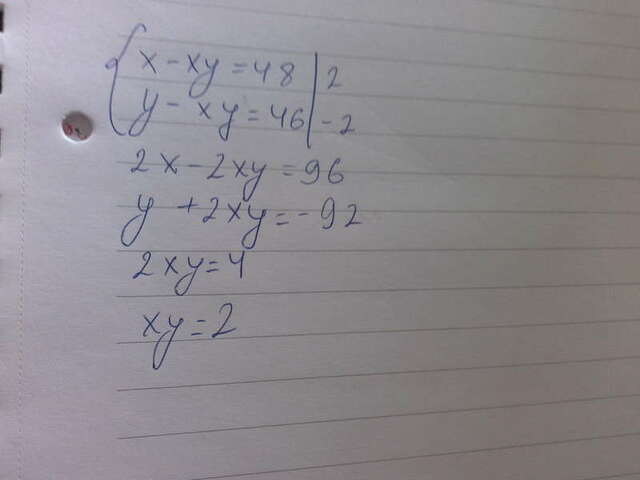 x - xy = 48 | 2
y - xy = 46 | -2
2x - 2xy = 96
y + 2xy = -92
2xy = 4
xy = 2